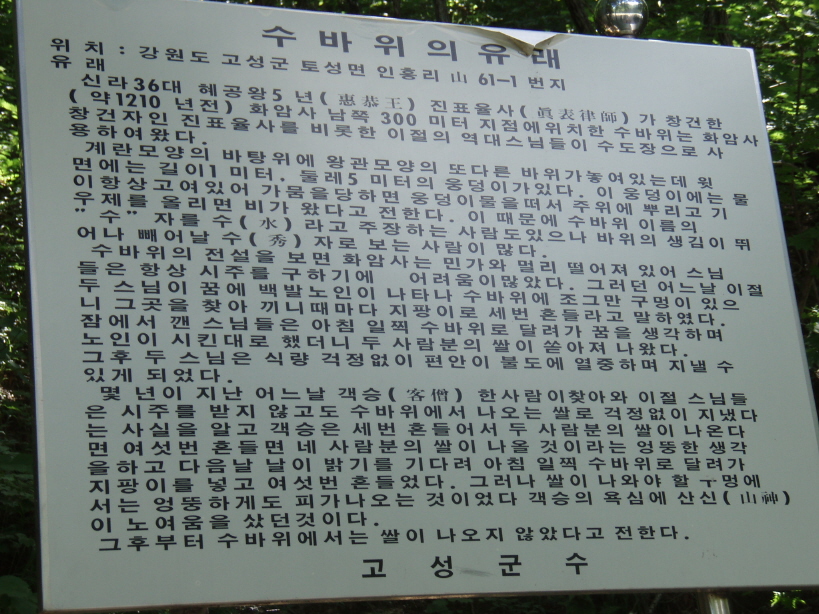 수바위의유래
위 치 : 강원도 고성군 토성면 인흥리 山 61-1 번지
유 래
신라36대 혜공왕5 년( 惠恭王 ) 진표율사( 眞表律師 ) 가 창건한
( 약1210 년전) 화암사 남쪽 300 미터 지점에위치한 수바위는 화암사
창건자인 진표율사를 비롯한 이절의 역대스님들이 수도장으로 사
용하여왔다.
계란모양의 바탕위에 왕관모양의 또다른 바위가놓여있는데 윗
면에는 길이1 미터. 둘레5 미터의 웅덩이가있다. 이 웅덩이에는 물
이항상고여있어 가뭄을당하면 웅덩이물을떠서 주위에 뿌리고 기
우제를 올리면 비가 왔다고 전한다. 이 때문에 수바위 이름의
"수" 자를 수( 水 ) 라고 주장하는 사람도있으나 바위의 생김이 뛰
어나 빼어날 수( 秀 ) 자로 보는 사람이 많다.
수바위의 전설을 보면 화암사는 민가와 멀리 떨어져 있어 스님
들은 항상 시주를 구하기에 어려움이많았다. 그러던 어느날 이절
두 스님이 꿈에 백발노인이 나타나 수바위에 조그만 구멍이 있으
니 그곳을 찾아 끼니때마다 지팡이로 세번 흔들라고 말하였다.
잠에서 깬 스님들은 아침 일찍 수바위로 달려가 꿈을 생각하며
노인이 시킨대로 했더니 두 사람분의 쌀이 쏟아져 나왔다.
그후 두 스님은 식량 걱정없이 편안이 불도에 열중하며 지낼 수
있게 되었다.
몇 년이 지난 어느날 객승( 客僧 ) 한사람이찾아와 이절 스님들
은 시주를 받지 않고도 수바위에서 나오는 쌀로 걱정없이 지냈다
는 사실을 알고 객승은 세번 흔들어서 두 사람분의 쌀이 나온다
면 여섯번 흔들면 네 사람분의 쌀이 나올 것이라는 엉뚱한 생각
을하고 다음날 날이 밝기를 기다려 아침 일찍 수바위로 달려가
지팡이를 넣고 여섯번 흔들었다. 그러나 쌀이 나와야 할 ㅜ멍에
서는 엉뚱하게도 피가나오는 것이었다 객승의 욕심에 산신( 山神 )
이 노여움을 샀던것이다.
그후부터 수바위에서는 쌀이 나오지 않았다고 전한다.
고 성 군 수